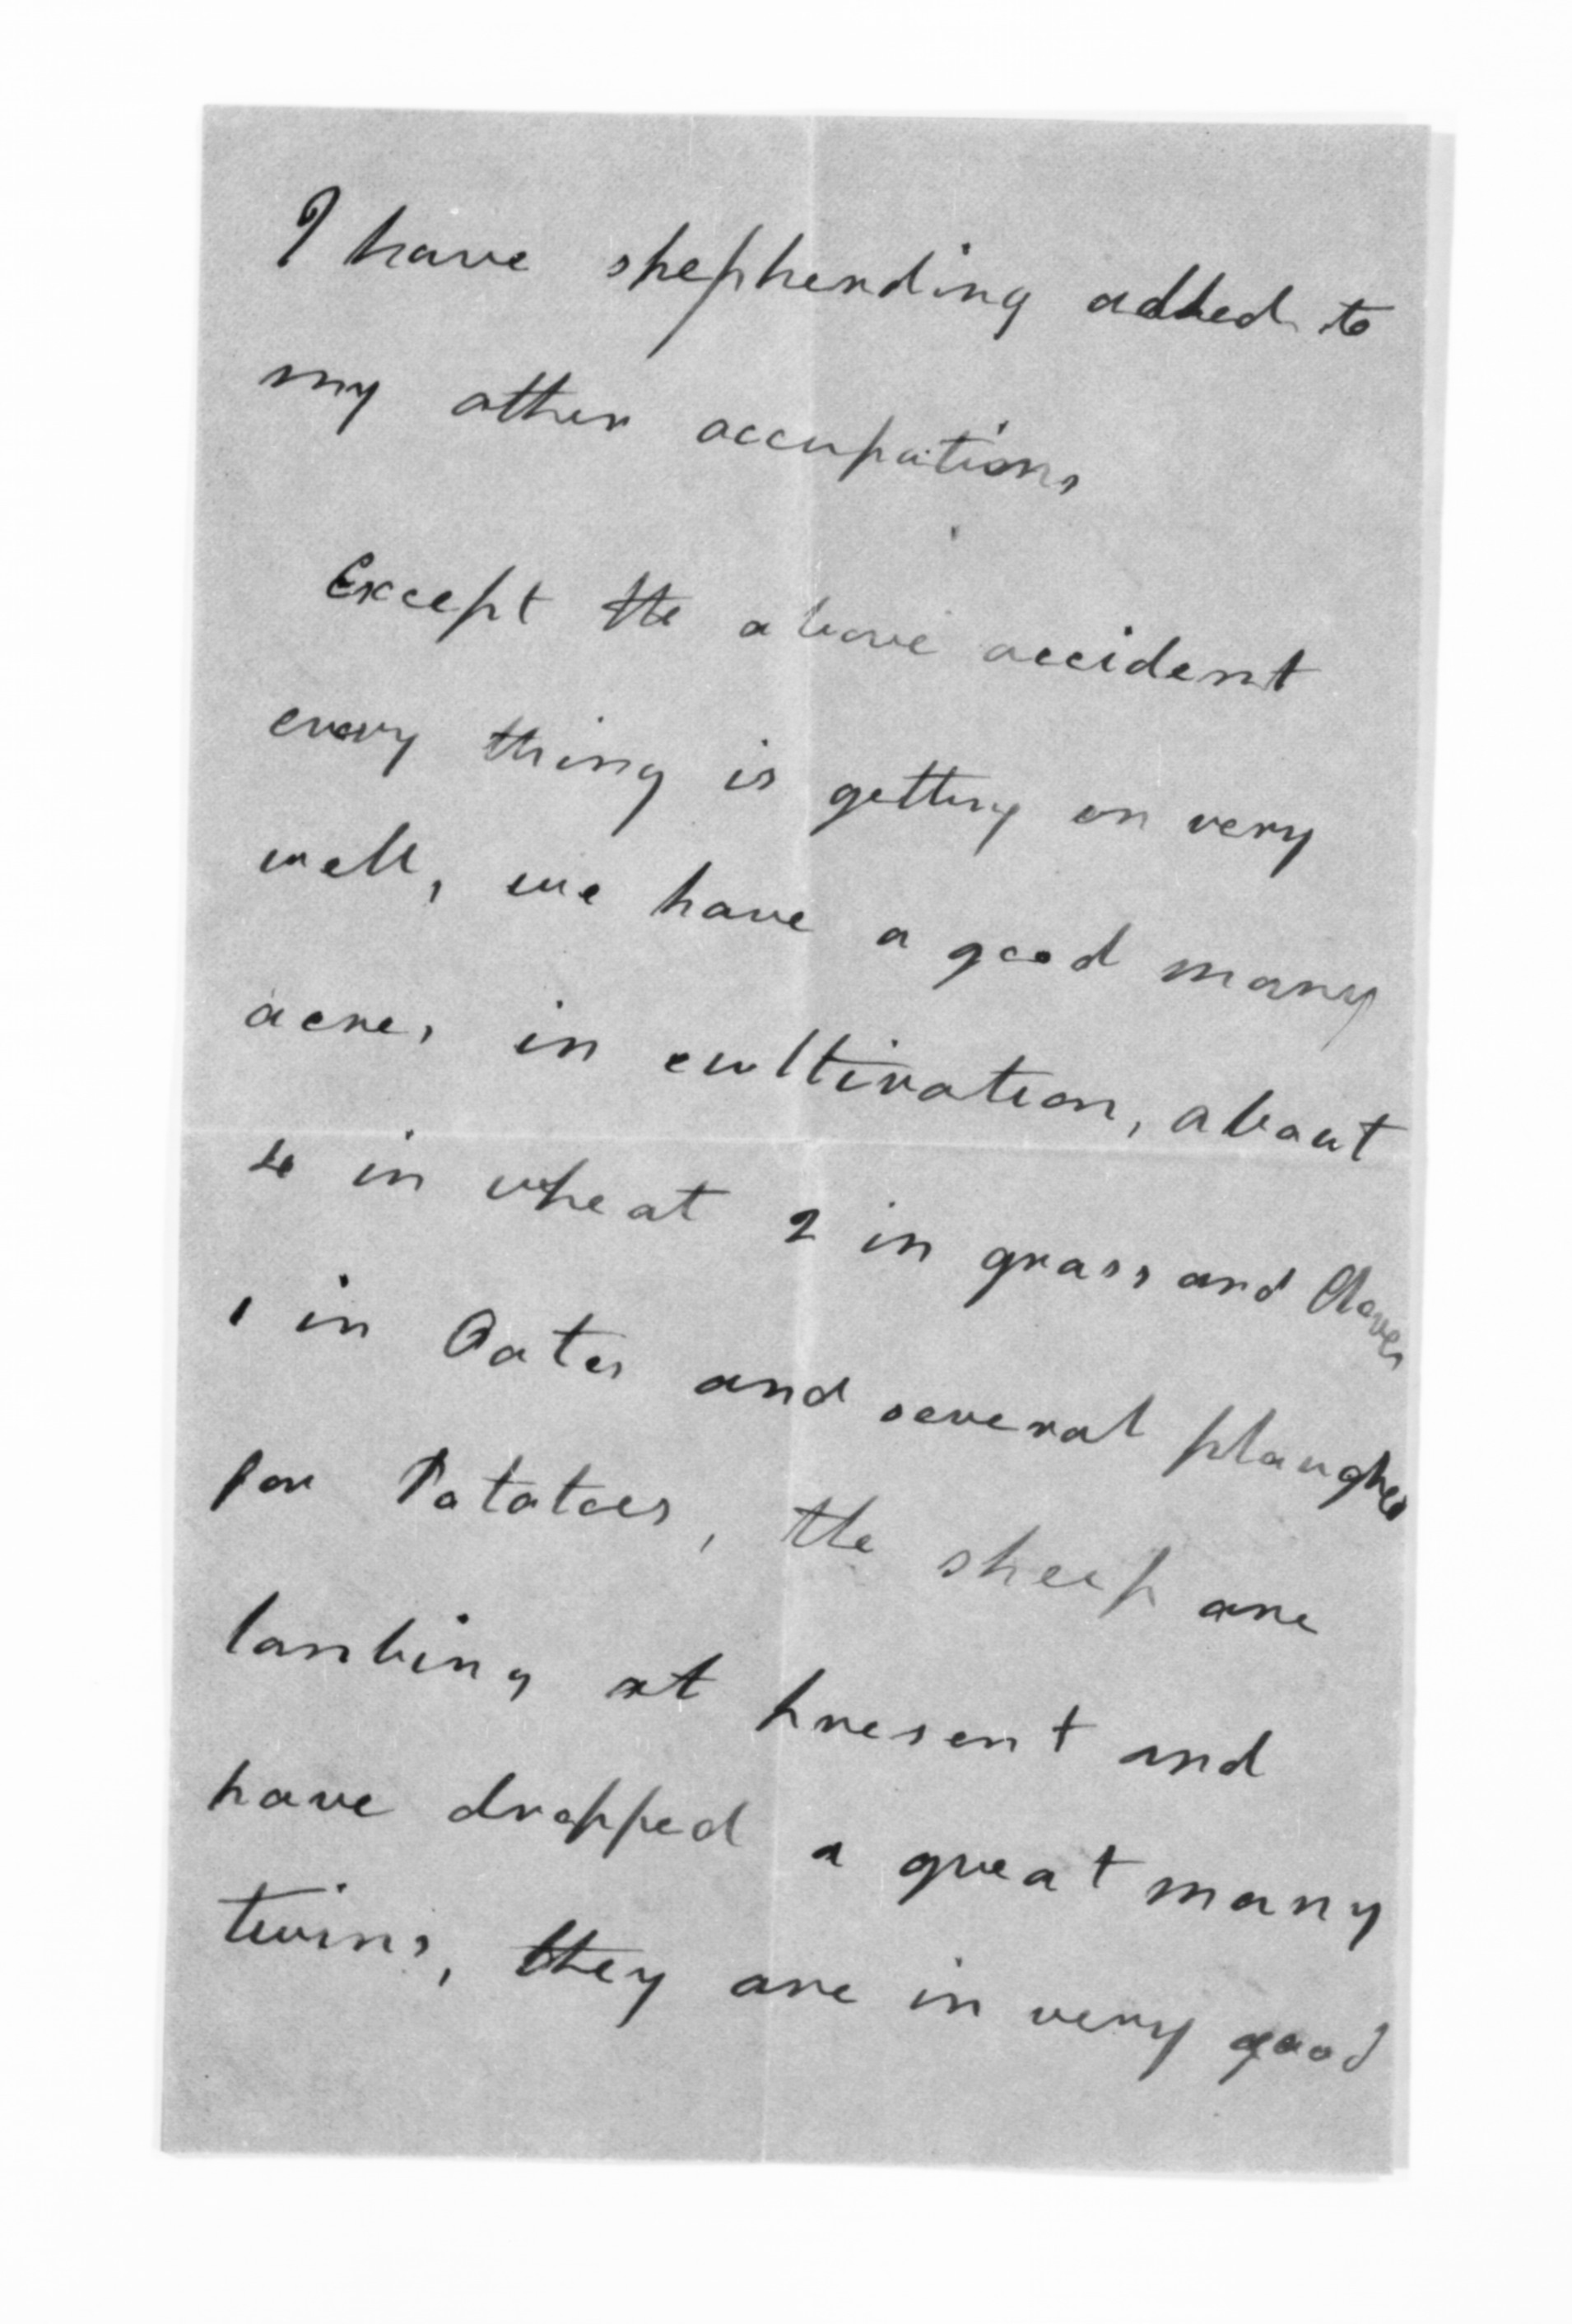 I have shepherding added to
my other occupations
Except the above accident
every thing is getting on very
well, we have a good many
acres in cultivation, about
4 in wheat 2 in grass and Clover
1 in Oates and several ploughed
for Potatoes, the sheep are
lambing at present and
have dropped a great many
twins, they are in very good